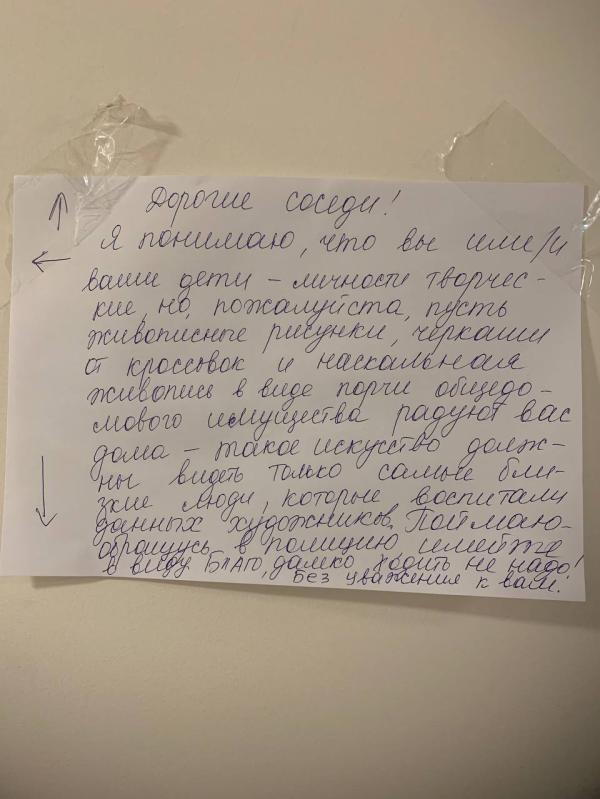 Дорогие соседи!
Я понимаю, что вы или/и
ваши дети – личности творчес-
кие, но, пожалуйста, пусть
живописные рисунки, черкаши
от кроссовок и наскальная
живопись в виде порчи общедо-
мового имущества радуют вас
дома – такое искусство долж-
ны видеть только самые бли-
зкие люди, которые воспитали
данных художников. Поймаю-
обращусь в полицию имейте
в виду БЛАГО, далеко ходить не надо!
Без уважения к вам!